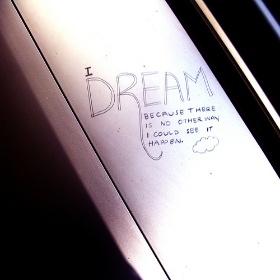 I
DREAM
BECAUSE THERE
IS NO OTHER WAY
I COULD SEE IT
HAPPEN.